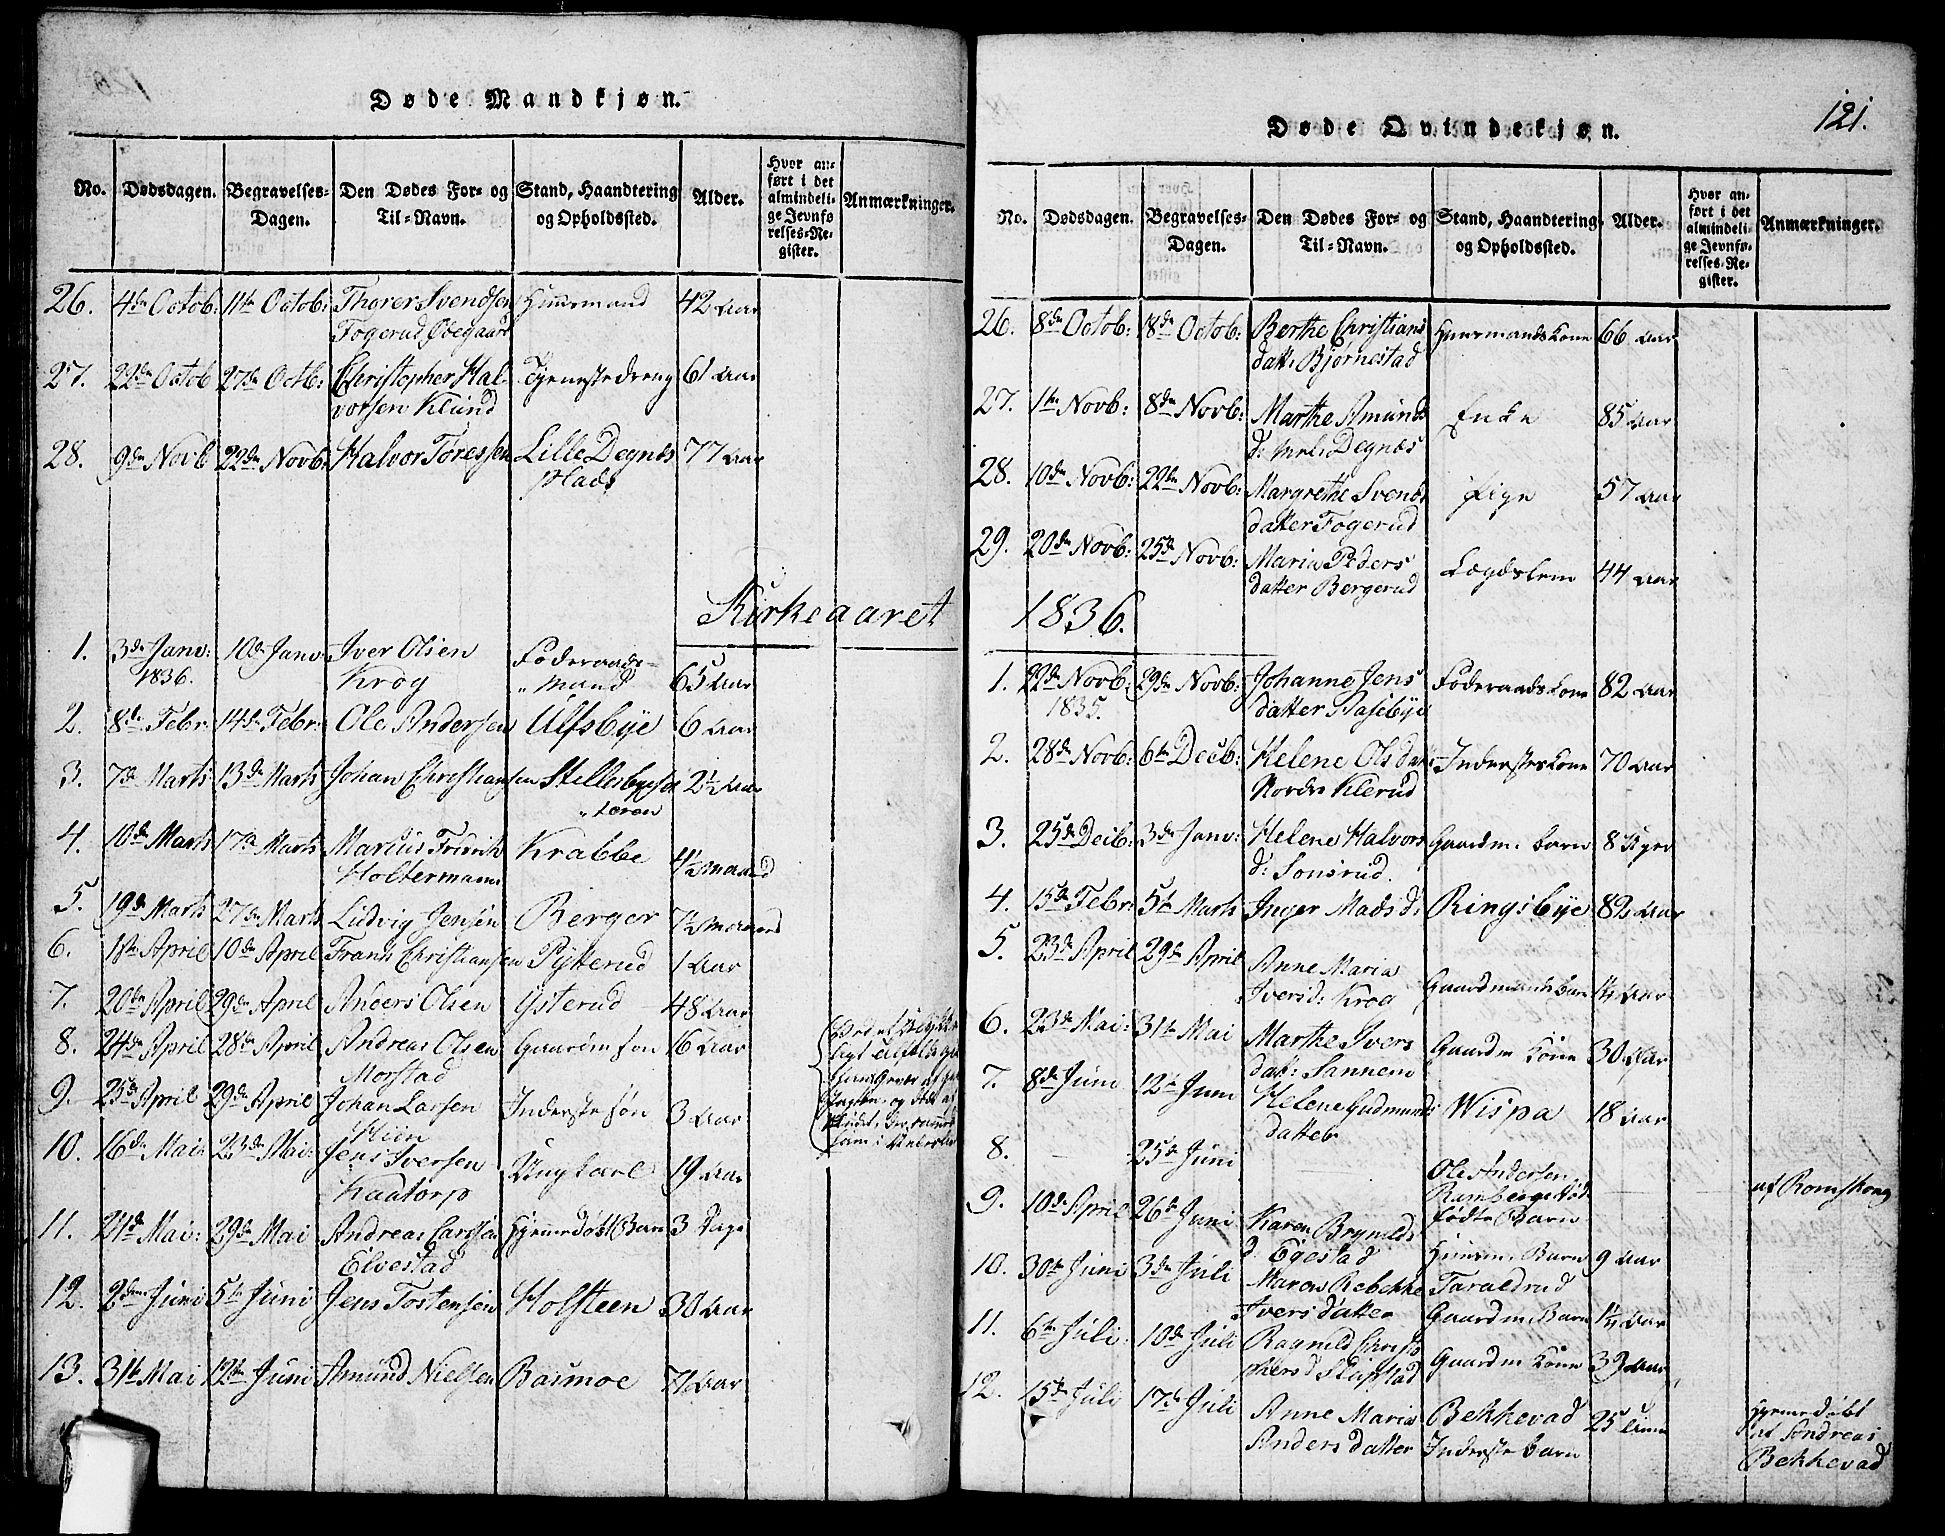 Døde Mandkjøn.
No. Dødsdagen. Begravelses-Dagen. Den Dødes For- og Til-Navn. Stand, Haandtering og Opholdssted. Alder. Hvor anført i det almindelige Jevnførelses-Register. Anmærkninger.
26. 4de Octob: 11te Octob: Thorer Svendsen Huusmand 42 Aar
Fogerud Ødegaard
27. 22de Octob 27de Octb: Christopher Hal- Tjenestedreng 61 Aar
vorsen Klund
28. 9de Novb 22de Novb: Halvor Tøressen Lille Degnæs 77 Aar
Plads
Kirkeaaret
1. 3de Janv: 10de Janv: Iver Olsen Føderaads- 65 Aar
1836. Krog mand
2. 8de Febr: 14de Febr: Ole Andersen Ulfsbye 6 Aar
3. 7de Marts 13de Marts Johan Christiansen 2½ Aar
4. 10de Marts 17de Marts Marius Fridrich Krabbe 4½ maaned
Holtermann
5. 19de Marts 27de Marts Ludvig Jensen Berger 7½ maaned
6. 1ste April 10de April Frans Christiansen Pytterud 1 Aar
7. 20de April 29de April Anders Olsen Ysterud 48 Aar
8. 24de April 28de April Andreas Olsen Gaardm søn 16 Aar
Morstad
9. 25de April 29de April Johan Larsen Inderste søn 3 Aar
10. 16de Mai: 23de Mai: Jens Iversen Ungkarl 19 Aar
Kaatorp
11. 21de Mai: 29de Mai Andreas Larssen Hjemmedøbt Barn 3 Dage
Elvestad
12. 2den Juni 5te Juni Jens Tostensen Holsteen 30 Aar
13. 31te Mai 12te Juni Amund Nielsen Basmoe 71 Aar
121.
Døde Qvindekjøn.
No. Dødsdagen. Begravelses-Dagen. Den Dødes For- og Til-Navn. Stand, Haandtering og Opholdssted. Alder. Hvor anført i det almindelige Jevnførelses-Register. Anmærkninger.
26. 8de Octob: 18de Octob: Berthe Christians Huusmandskone 66 Aar
datt: Bjørnestad
27. 1te Novb: 8de Novb: Marthe Amunds Enke 85 Aar
d: Degnæs
28. 10de Novb: 22de Novb: Margrethe Svends Pige 57 Aar
datter Fogerud
29. 20de Novb: 25de Novb: Maria Peders Lægdslem 44 Aar
datter Bergerud
1836.
1. 22de Novb: 29de Novb: Johanne Jens Føderaadskone 82 Aar
1835. datter Aasebye
2. 28de Novb: 6te Decb: Helene Olsdatt Inderstekone 70 Aar
Nordre Klerud
3. 25de Decb: 3de Janv: Helene Halvors Gaardm: barn 8 Uger
d: Sonsrud.
4. 15de Febr: 5te Marts Inger Mads d: Ringsbye 82 Aar
5. 23de April 29de April Anne Maria Gaardmands barn 1½ Aar
Iversd: Krog
6. 23de Mai: 31te Mai Marthe Ivers Gaardm Kone 30 Aar
dat: Sannem
7. 8de Juni 12te Juni Helene Gudmunds Wispa 18 Aar
datter
8. 25de Juni Ole Andersen
Ramberges død-
fødte Barn
af Romskoug
9. 10de April 26de Juni Karen Brynilds Huusm: Barn 9 Aar
d: Egestad
10. 30te Juni 3de Juli Maren Rebekke Taraldrud
Iversdatter Gaardm: Barn 1½ Aar
11. 6te Juli 10de Juli Ragnild Christo Gaardm Kone 39 Aar
phersd
12. 15de Juli 17de Juli Anne Maria Bekkevad 25
Andersdatter Inderste barn
Hjemmedøbt
af Andreas
Bekkevad